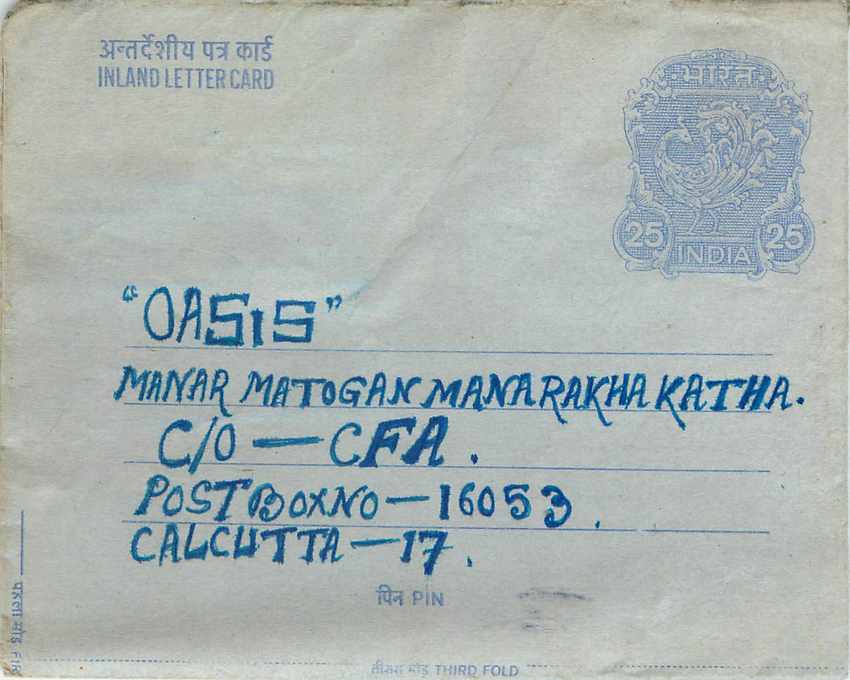 अन्तर्देशीय पत्र कार्ड
INLAND LETTER CARD
भारत
25 INDIA 25
“OASIS”
MANAR MATOGAN MANARAKHA KATHA.
C/O — CFA.
POST BOX NO — 16053.
CALCUTTA — 17.
पिन PIN
पहला मोड़ FIR
तीसरा मोड़ THIRD FOLD